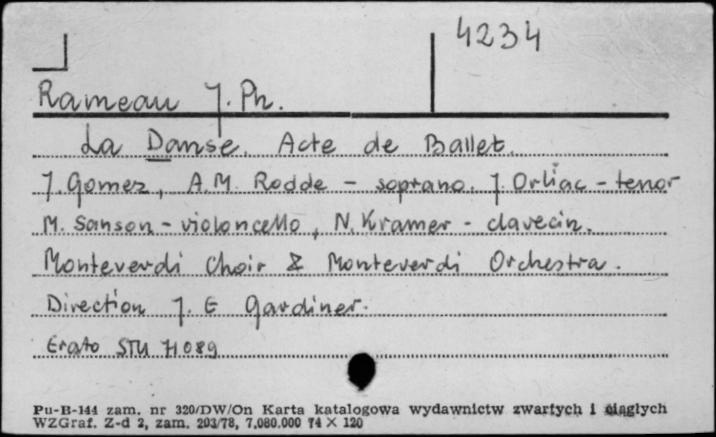 4234
Rameau J. Ph.
La Danse. Acte de Ballet.
J. Gomez, A.M. Rodde - soprano. J Orliac - tenor
M. Sanson - violoncello, N. Kramer - clavecin.
Monteverdi Choir & Monteverdi Orchestra.
Direction J. E Gardiner.
Erato STU 71089
Pu-B-144 zam. nr 320/DW/On Karta katalogowa wydawnictw zwartych i ciągłych
WZGraf. Z-d 2, zam. 203/78, 7,080.000 74 × 120